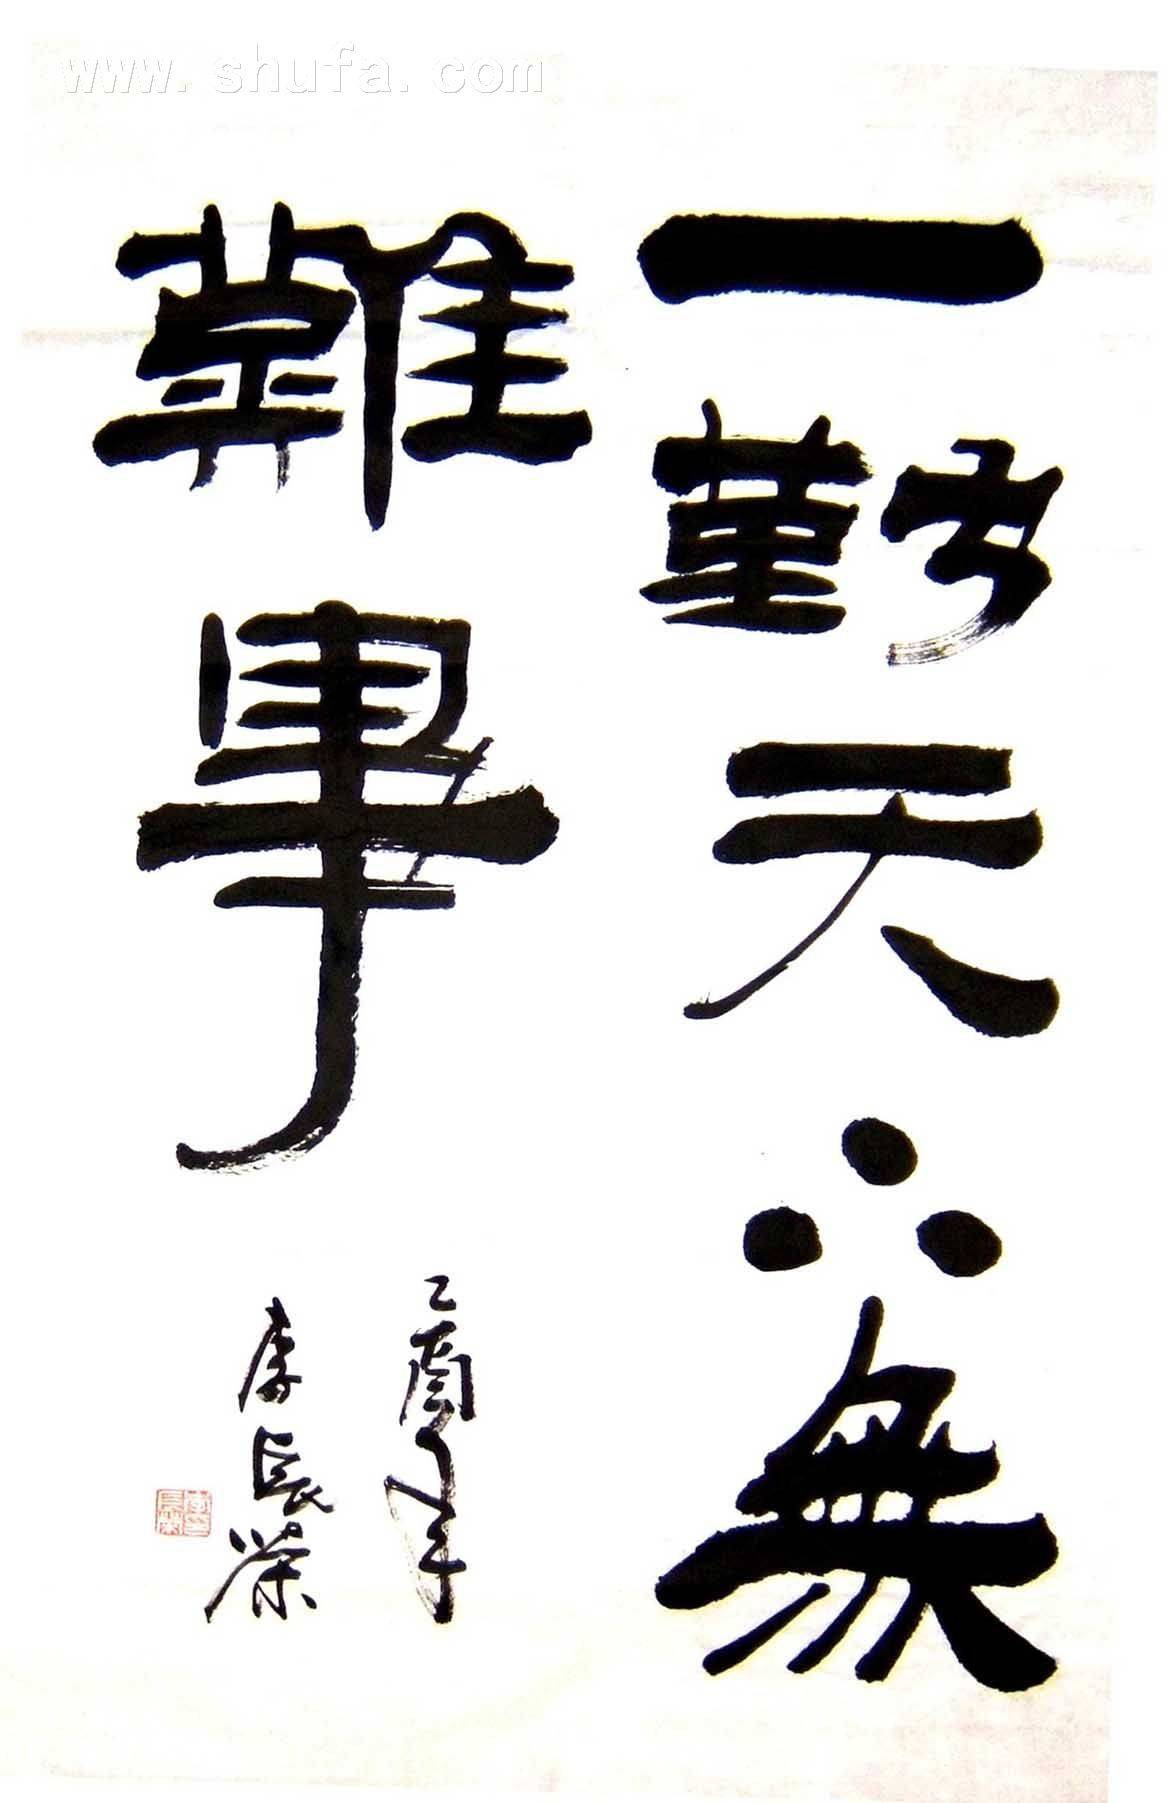 www.shufa.com
一勤天下無
難事
乙酉年
李長榮